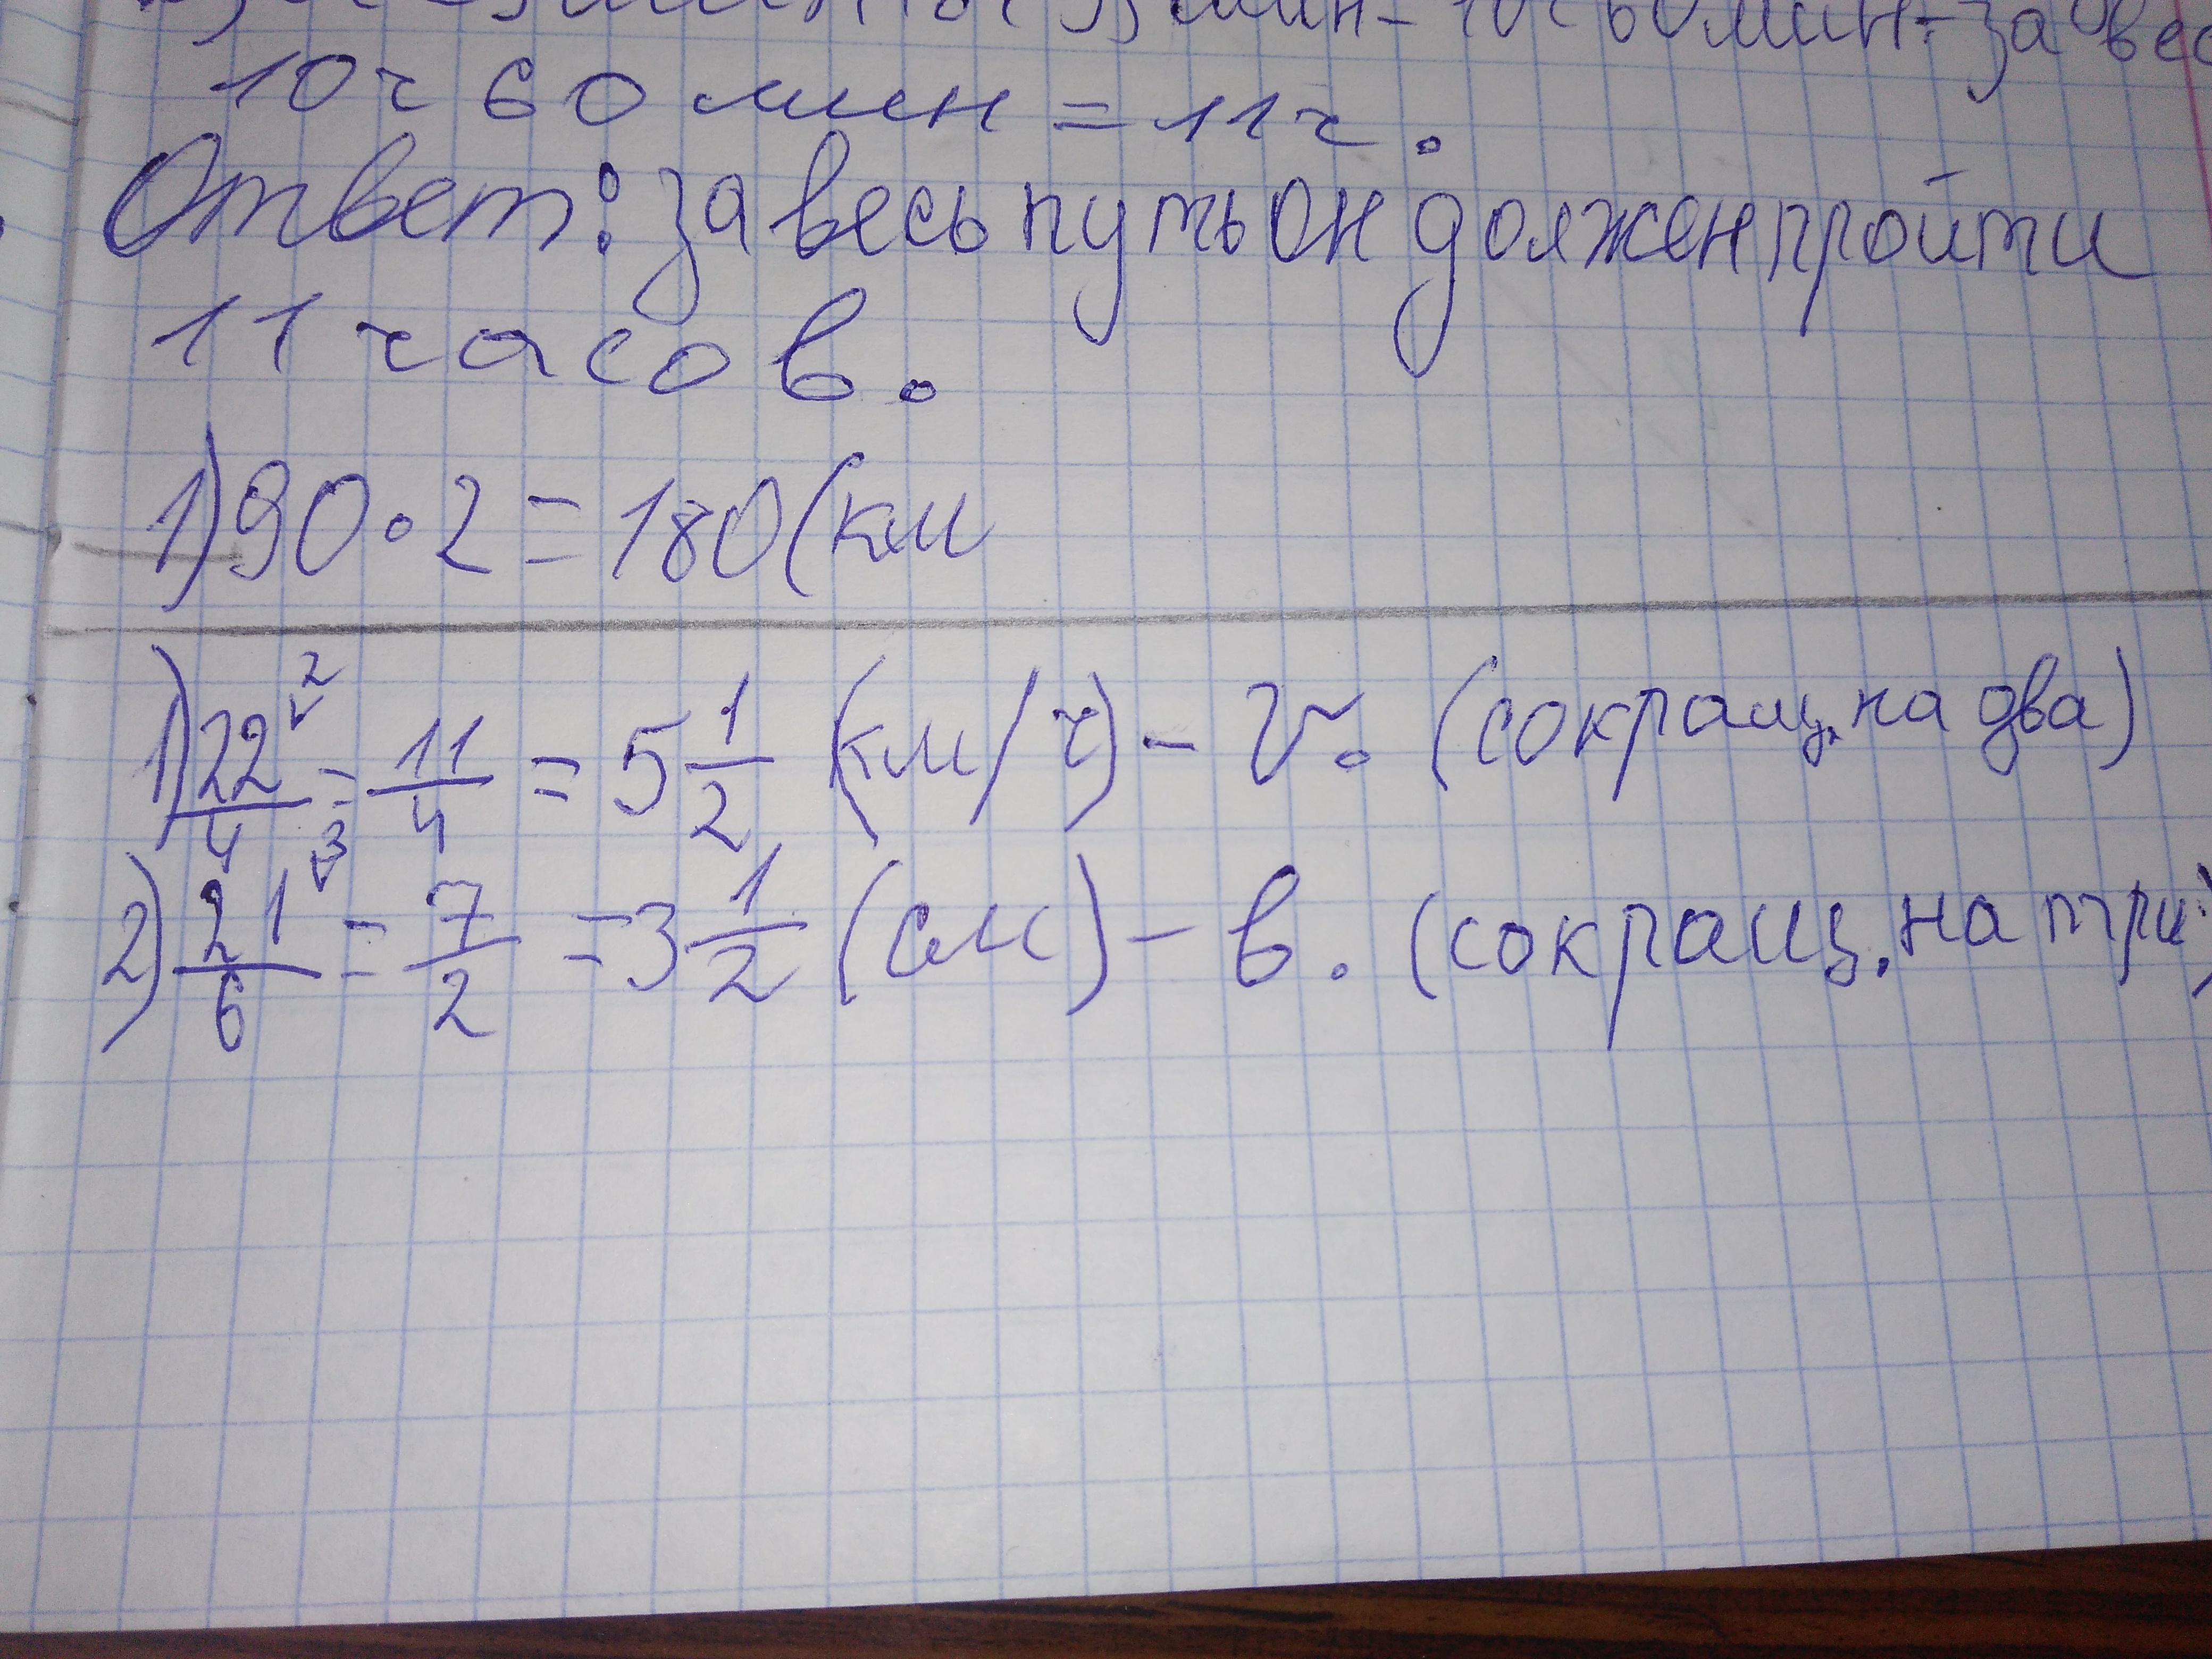 мин - 10ч 60мин - за вес
10ч 60 мин = 11ч.
Ответ: за весь путь он должен пройти
11 часов.
1) 90 • 2 = 180 (км
1) 22/4 2 = 11/4 = 5 1/2 (км/ч) - v. (сокращ. на два)
2) 21/6 3 = 7/2 = 3 1/2 (см) - в. (сокращ. на три)